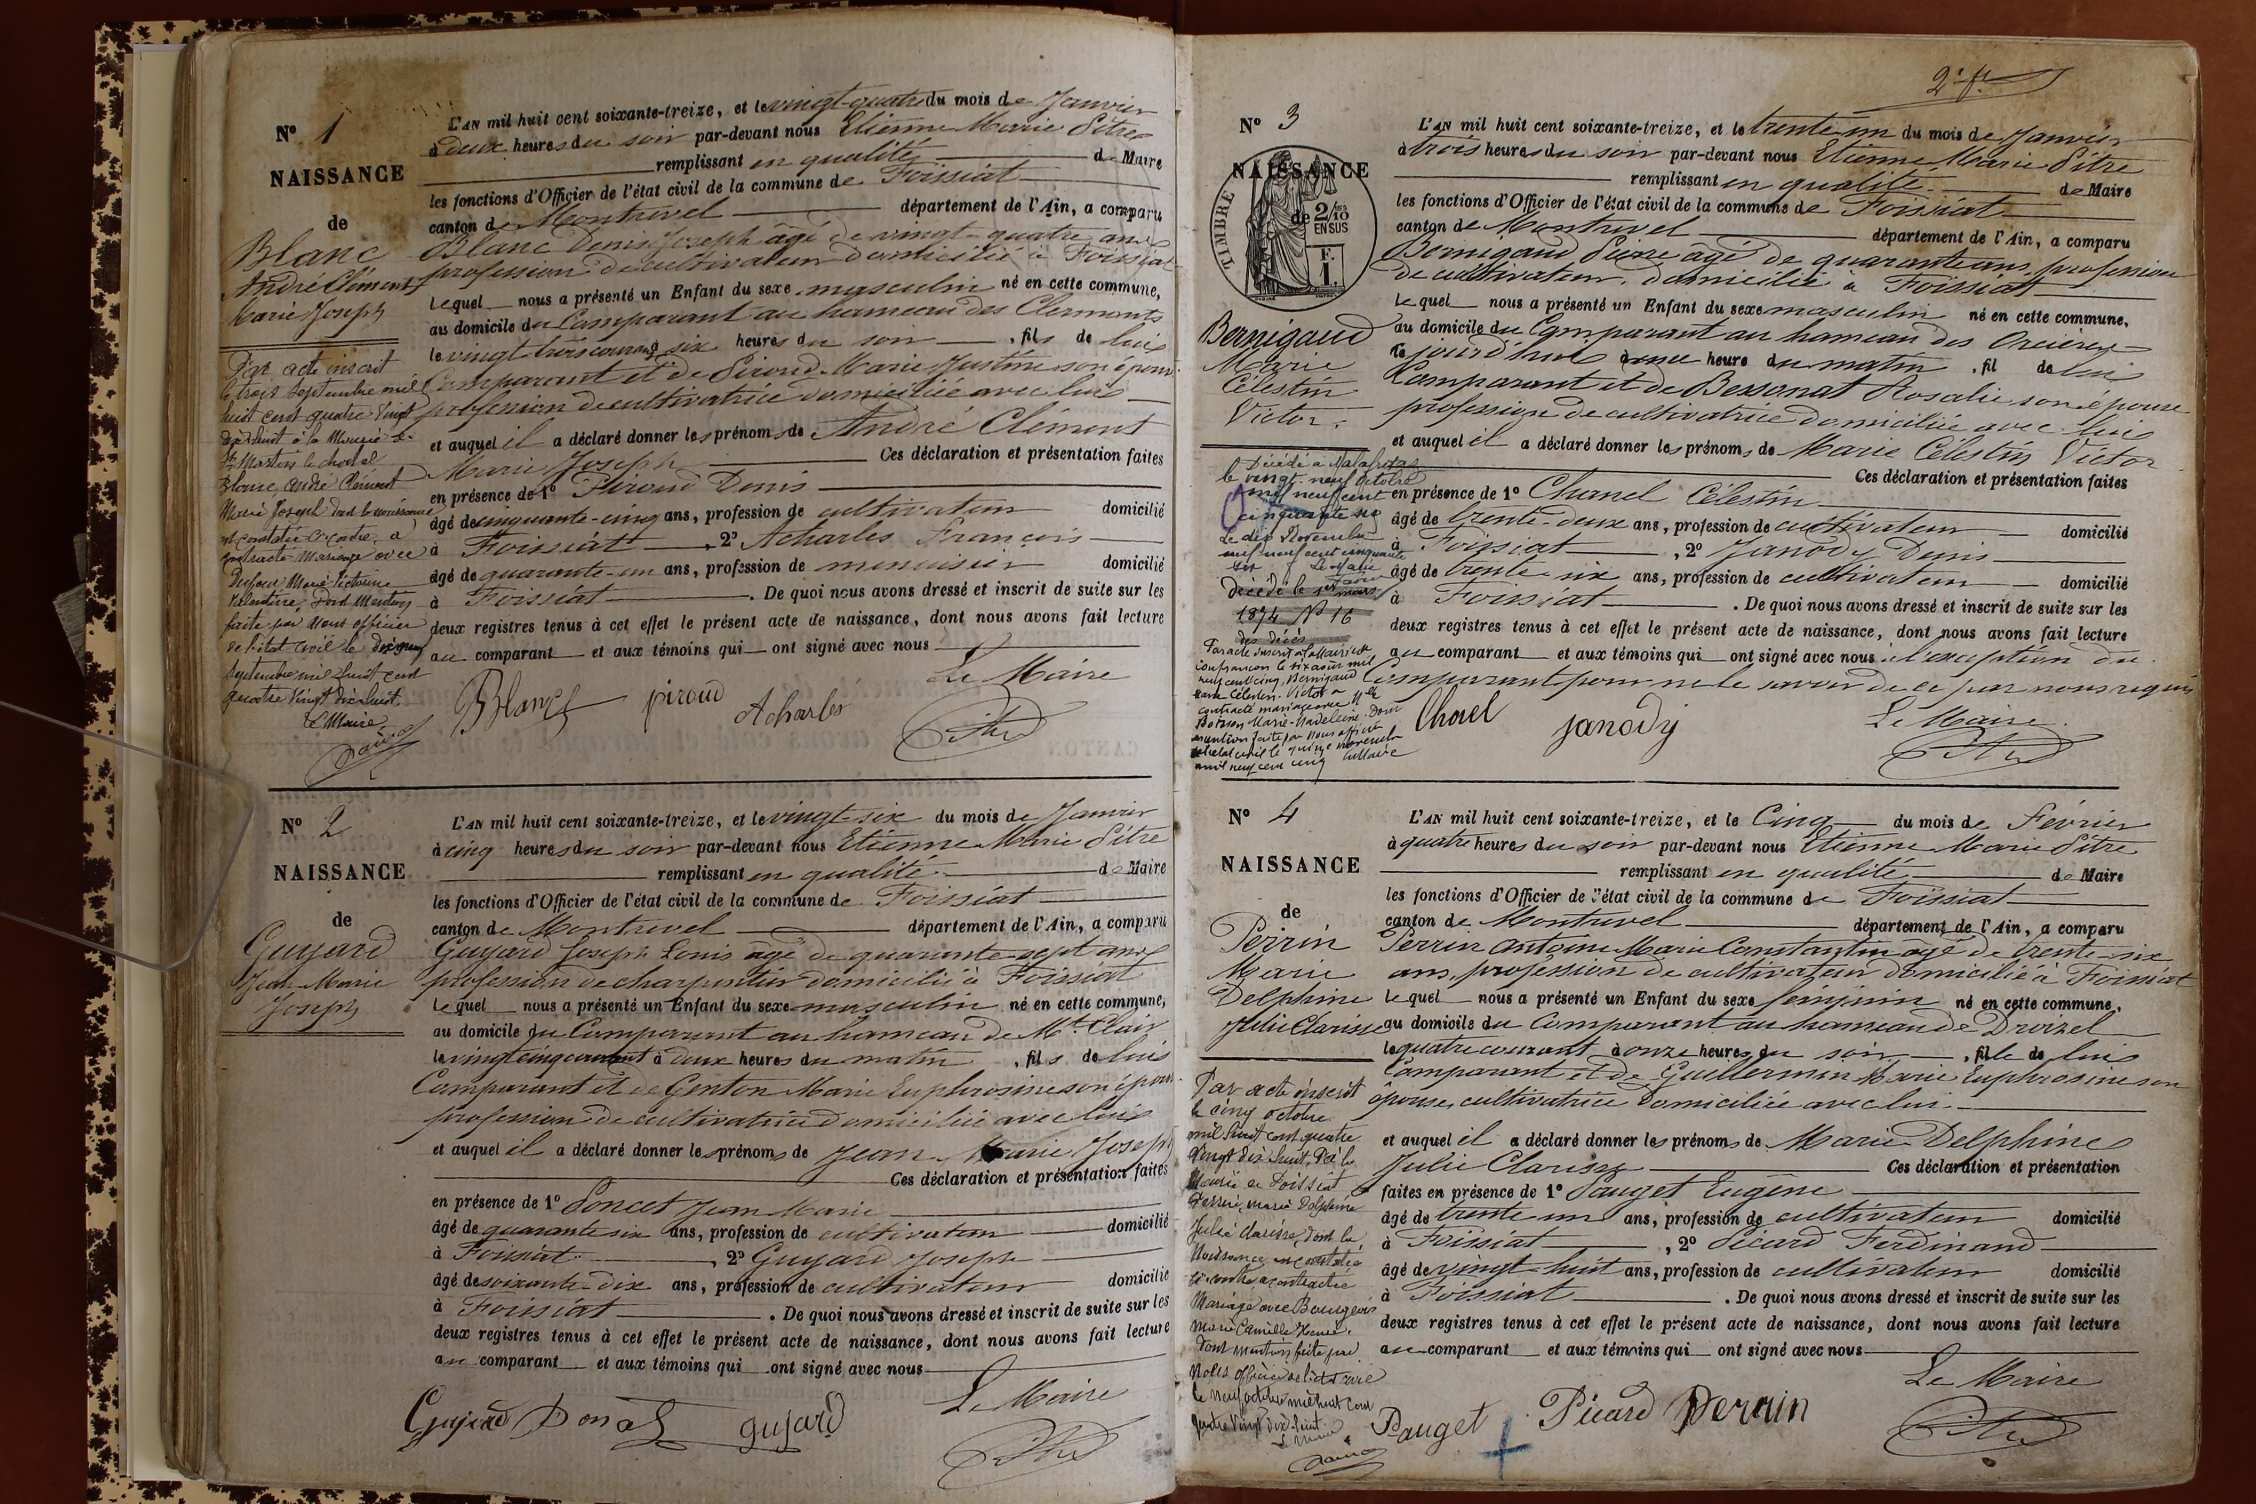 Nº 1
NAISSANCE
de
Blanc
André Clément
Marie Joseph
Par acte inscrit
le trois Septembre mil
huit cent quatre vingt
dix huit à la Mairie de
St Martin le chatel
Blanc, André Clément
Marie Joseph dont la naissance
est constatée ci contre, a
contracté mariage avec
Dufour Marie Victorine
dont mention
faite par nous officier
de l'état civil le
Septembre mil huit cent
quatre vingt dix huit
Le Maire
L'AN mil huit cent soixante-treize, et le vingt-quatre du mois de Janvier
à deux heures du soir par-devant nous Etienne Marie Pitre
remplissant en qualité de Maire
les fonctions d'Officier de l'état civil de la commune de Foissiat
canton de Montrevel département de l'Ain, a comparu
Blanc Denis Joseph âgé de vingt-quatre ans
profession de cultivateur domicilié à Foissiat
Lequel nous a présenté un Enfant du sexe masculin né en cette commune,
au domicile du Comparant au hameau des Clermonts
le vingt trois courant à six heures du soir, fils de lui
Comparant et de Piroud Marie Justine son épouse
profession de cultivatrice domiciliée avec lui
et auquel il a déclaré donner les prénoms de André Clément
Marie Joseph Ces déclaration et présentation faites
en présence de 1º Piroud Denis
âgé de cinquante-cinq ans, profession de cultivateur domicilié
à Foissiat, 2º Acharles François
âgé de quarante-un ans, profession de menuisier domicilié
à Foissiat. De quoi nous avons dressé et inscrit de suite sur les
deux registres tenus à cet effet le présent acte de naissance, dont nous avons fait lecture
au comparant et aux témoins qui ont signé avec nous
Le Maire
Blanc piroud Acharles Pitre
Nº 2
NAISSANCE
de
Guyard
Jean Marie
Joseph
L'AN mil huit cent soixante-treize, et le vingt-six du mois de Janvier
à cinq heures du soir par-devant nous Etienne Marie Pitre
remplissant en qualité de Maire
les fonctions d'Officier de l'état civil de la commune de Foissiat
canton de Montrevel département de l'Ain, a comparu
Guyard Joseph Louis âgé de quarante-sept ans
profession de charpentier domicilié à Foissiat
Lequel nous a présenté un Enfant du sexe masculin né en cette commune,
au domicile du Comparant au hameau de Mt Clair
le vingt cinq courant à deux heures du matin, fils de lui
Comparant et de Genton Marie Euphrosine son épouse
profession de cultivatrice domiciliée avec lui
et auquel il a déclaré donner les prénoms de Jean Marie Joseph
Ces déclaration et présentation faites
en présence de 1º Poncet Jean Marie
âgé de quarante six ans, profession de cultivateur domicilié
à Foissiat, 2º Guyard Joseph
âgé de soixante-dix ans, profession de cultivateur domicilié
à Foissiat. De quoi nous avons dressé et inscrit de suite sur les
deux registres tenus à cet effet le présent acte de naissance, dont nous avons fait lecture
au comparant et aux témoins qui ont signé avec nous
Le Maire
Guyard guyard Pitre
2e ft
Nº 3
NAISSANCE
de
TIMBRE
2/10
EN SUS
F.
1.
Bernigaud
Marie
Célestin
Victor
Décédé à Malafretaz
le vingt-neuf Octobre
mil neuf cent
cinquante six
Le dix Novembre
mil neuf cent cinquante
six Le Maire
décédé le 1er mars
1874 Nº 16
des décès
Par acte inscrit à la Mairie de
Confrançon le six août mil
neuf cent cinq, Bernigaud
Marie Célestin Victor a
contracté mariage avec Melle
Marie-Madeleine dont
mention faite par nous officier
de l'état civil le quinze novembre
mil neuf cent cinq Le Maire
L'AN mil huit cent soixante-treize, et le trente-un du mois de Janvier
à trois heures du soir par-devant nous Etienne Marie Pitre
remplissant en qualité de Maire
les fonctions d'Officier de l'état civil de la commune de Foissiat
canton de Montrevel département de l'Ain, a comparu
Bernigaud Pierre âgé de quarante ans, profession
de cultivateur, domicilié à Foissiat
Lequel nous a présenté un Enfant du sexe masculin né en cette commune,
au domicile du Comparant au hameau des Orcières
ce jourd'hui à une heure du matin, fil de lui
Comparant et de Bessonat Rosalie son épouse
profession de cultivatrice domiciliée avec lui
et auquel il a déclaré donner les prénoms de Marie Célestin Victor
Ces déclaration et présentation faites
en présence de 1º Chanel Célestin
âgé de trente-deux ans, profession de cultivateur domicilié
à Foissiat, 2º Janody Denis
âgé de trente-six ans, profession de cultivateur domicilié
à Foissiat. De quoi nous avons dressé et inscrit de suite sur les
deux registres tenus à cet effet le présent acte de naissance, dont nous avons fait lecture
au comparant et aux témoins qui ont signé avec nous à l'exception du
Comparant pour ne le savoir de ce par nous requis
Le Maire
Chanel janody Pitre
Nº 4
NAISSANCE
de
Perrin
Marie
Delphine
Julie Clarisse
Par acte inscrit
le cinq octobre
mil huit cent quatre
vingt dix huit, à la
Mairie de Foissiat
Perrin, Marie Delphine
Julie Clarisse, dont la
Naissance est constatée
ci-contre a contracté
Mariage avec Bourgeois
Marie Camille
dont mention faite par
Nous officier de l'état civil
le neuf octobre mil huit cent
quatre vingt dix huit
Le Maire
L'AN mil huit cent soixante-treize, et le Cinq du mois de Février
à quatre heures du soir par-devant nous Etienne Marie Pitre
remplissant en qualité de Maire
les fonctions d'Officier de l'état civil de la commune de Foissiat
canton de Montrevel département de l'Ain, a comparu
Perrin Antoine Marie Constantin âgé de trente-six
ans, profession de cultivateur domicilié à Foissiat
Lequel nous a présenté un Enfant du sexe féminin né en cette commune,
au domicile du Comparant au hameau de Droizel
le quatre courant à onze heures du soir, fille de lui
Comparant et de Guillermin Marie Euphrosine son
épouse, cultivatrice domiciliée avec lui
et auquel il a déclaré donner les prénoms de Marie Delphine
Julie Clarisse Ces déclaration et présentation
faites en présence de 1º Pauget Eugène
âgé de trente un ans, profession de cultivateur domicilié
à Foissiat, 2º Picard Ferdinand
âgé de vingt-huit ans, profession de cultivateur domicilié
à Foissiat. De quoi nous avons dressé et inscrit de suite sur les
deux registres tenus à cet effet le présent acte de naissance, dont nous avons fait lecture
au comparant et aux témoins qui ont signé avec nous
Le Maire
Pauget Picard Perrin Pitre